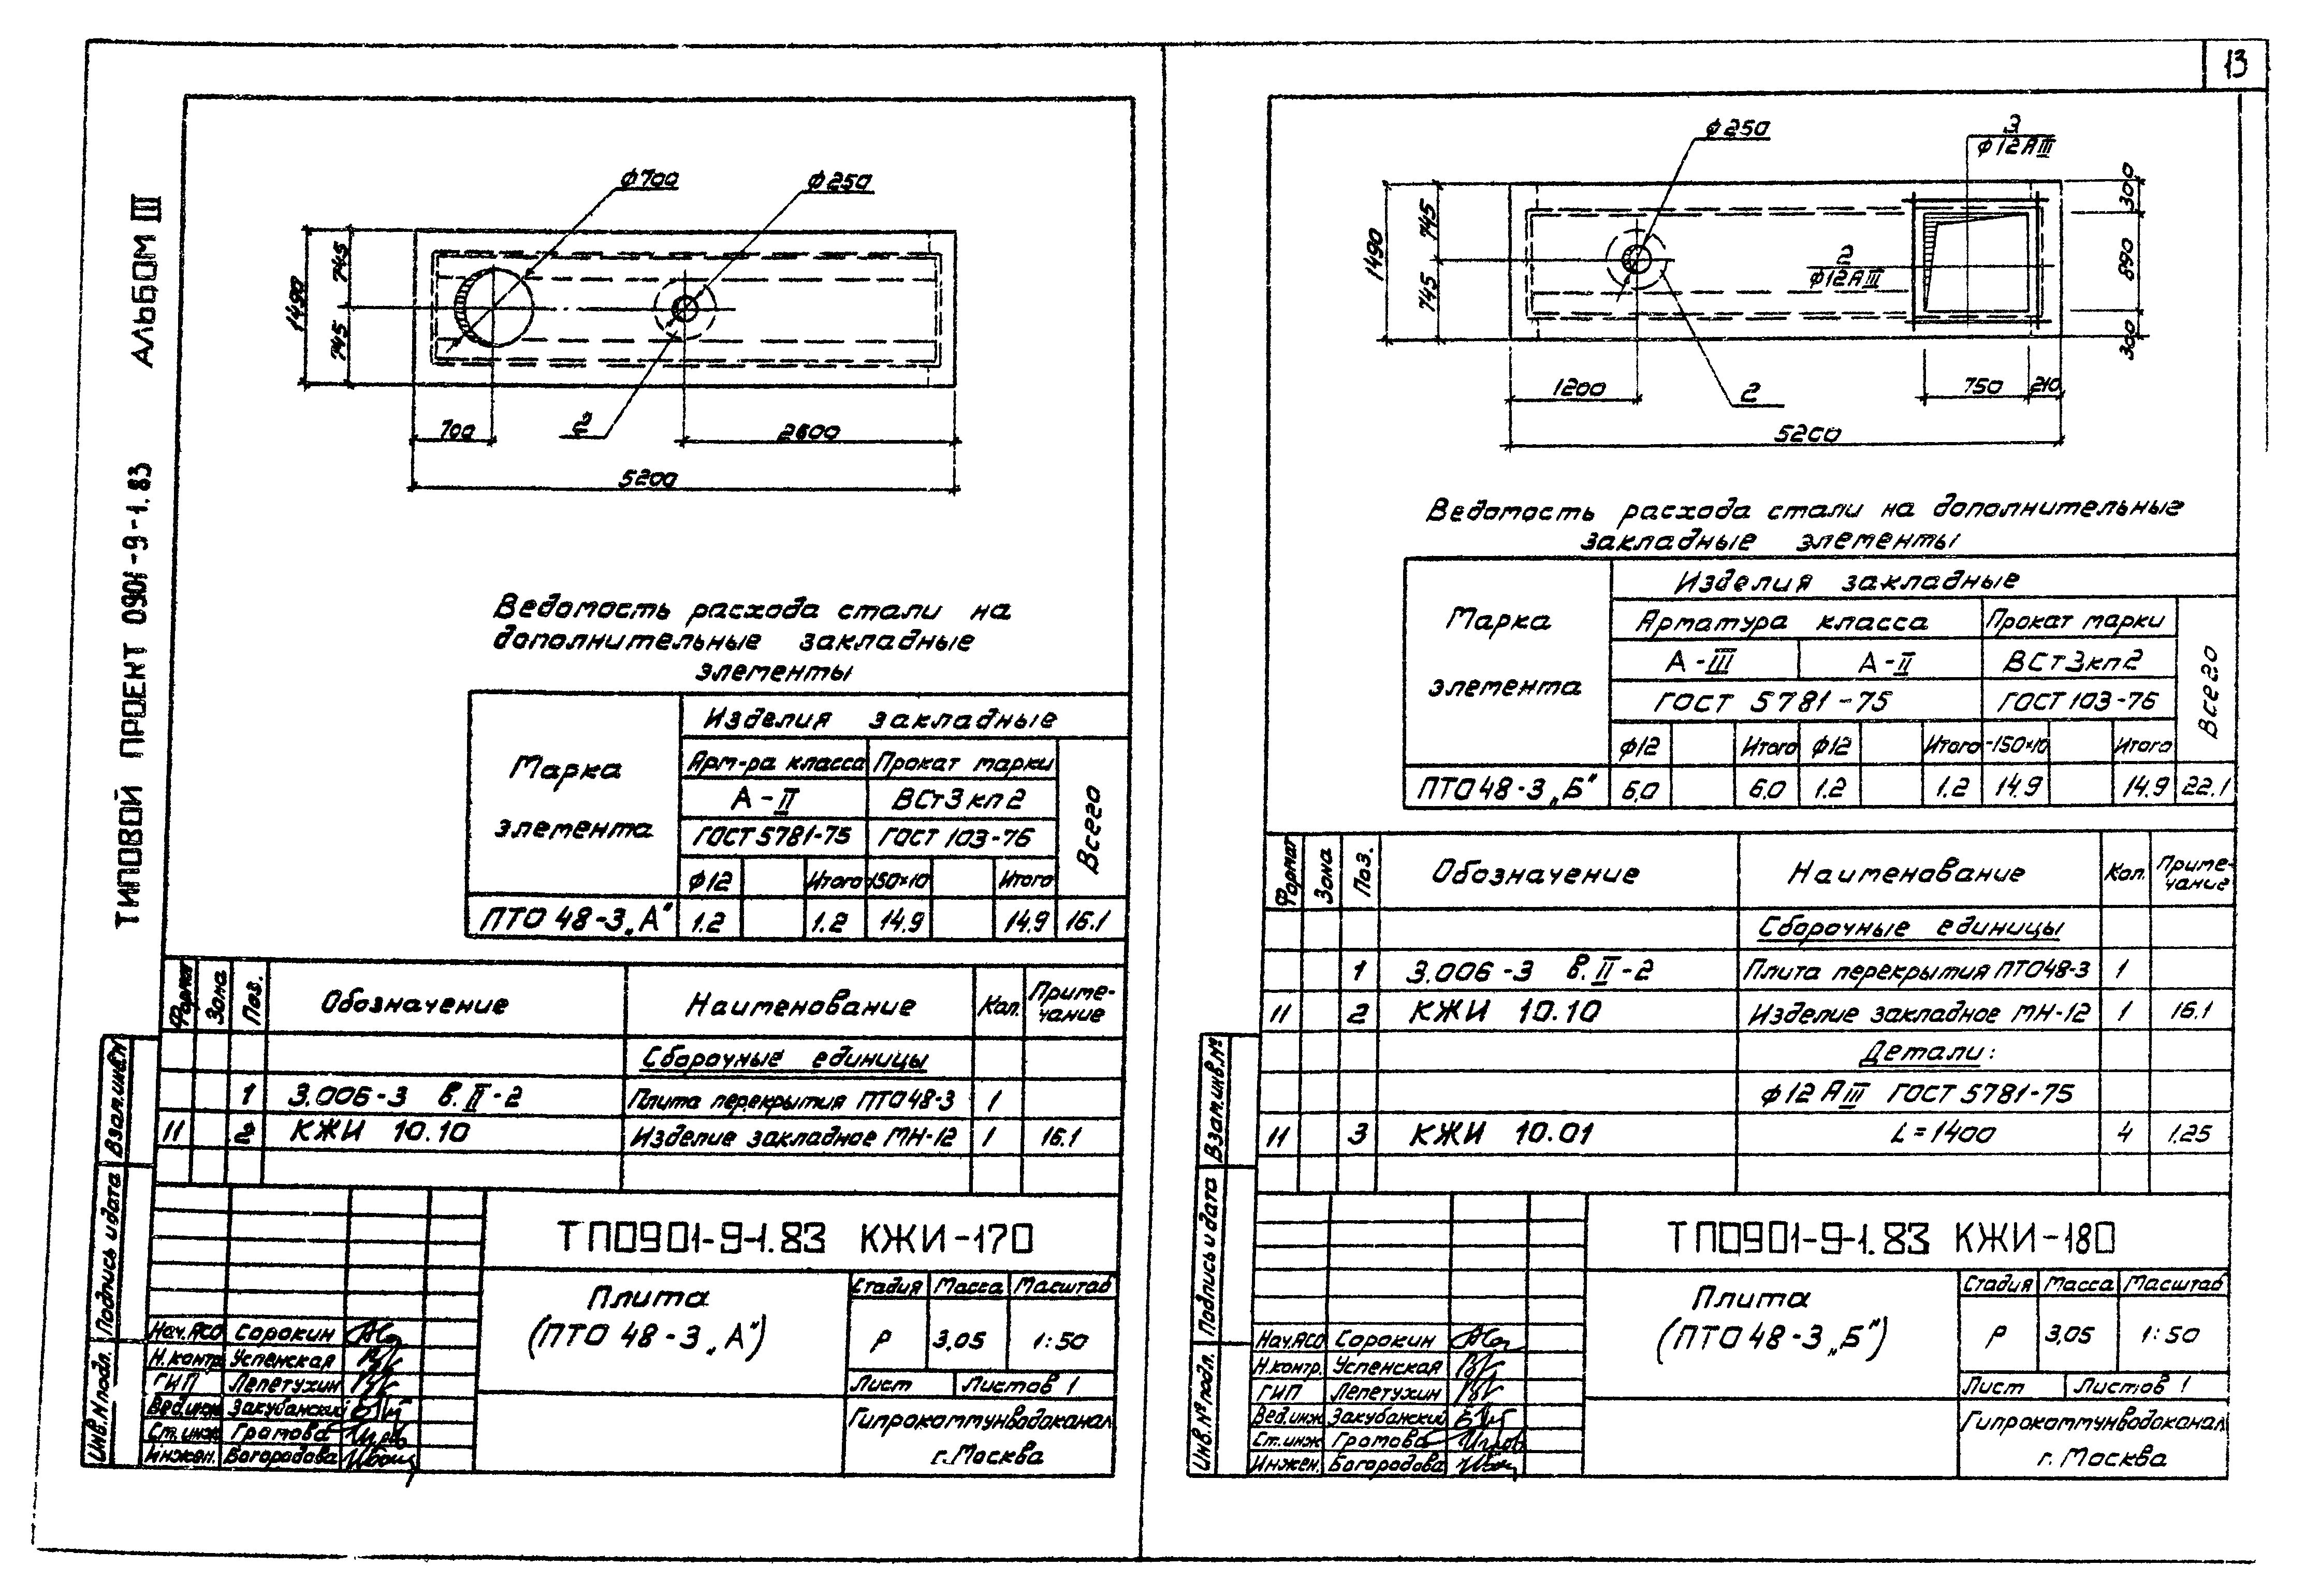 13
АЛЬБОМ III
ТИПОВОЙ ПРОЕКТ 0901-9-1.83
ϕ700
ϕ250
1490
745
745
2
700
2600
5200
Ведомость расхода стали на
дополнительные закладные
элементы
Марка
элемента
Изделия закладные
Арм-ра класса Прокат марки
А-II ВСт3кп2
ГОСТ 5781-75 ГОСТ 103-76
Всего
ϕ12 Итого 150×10 Итого
ПТО 48-3 „А" 1.2 1.2 14.9 14.9 16.1
Формат Зона Поз. Обозначение Наименование Кол. Приме-
чание
Сборочные единицы
1 3.006-3 в.II-2 Плита перекрытия ПТО48-3 1
11 2 КЖИ 10.10 Изделие закладное МН-12 1 16.1
Взам.инв.№
Подпись и дата
Инв.№подл.
ТП0901-9-1.83 КЖИ-170
Плита
(ПТО 48-3 „А")
Стадия Масса Масштаб
Р 3,05 1:50
Лист Листов 1
Гипрокоммунводоканал
г.Москва
Нач.АСО Сорокин
Н.контр. Успенская
ГИП Лепетухин
Вед.инж Закубанский
Ст.инж Громова
Инжен. Богородова
ϕ250
3
ϕ12АIII
2
ϕ12АIII
1490
745
745
300
890
300
1200
2
750
210
5200
Ведомость расхода стали на дополнительные
закладные элементы
Марка
элемента
Изделия закладные
Арматура класса Прокат марки
А-III А-II ВСт3кп2
ГОСТ 5781-75 ГОСТ 103-76
Всего
ϕ12 Итого ϕ12 Итого -150×10 Итого
ПТО48-3„Б" 6,0 6,0 1.2 1.2 14.9 14.9 22.1
Формат Зона Поз. Обозначение Наименование Кол. Приме-
чание
Сборочные единицы
1 3.006-3 в.II-2 Плита перекрытия ПТО48-3 1
11 2 КЖИ 10.10 Изделие закладное МН-12 1 16.1
Детали:
ϕ12 АIII ГОСТ 5781-75
11 3 КЖИ 10.01 L=1400 4 1.25
Взам.инв.№
Подпись и дата
Инв.№подл.
ТП0901-9-1.83 КЖИ-180
Плита
(ПТО 48-3„Б")
Стадия Масса Масштаб
Р 3,05 1:50
Лист Листов 1
Гипрокоммунводоканал
г.Москва
Нач.АСО Сорокин
Н.контр. Успенская
ГИП Лепетухин
Вед.инж Закубанский
Ст.инж Громова
Инжен. Богородова